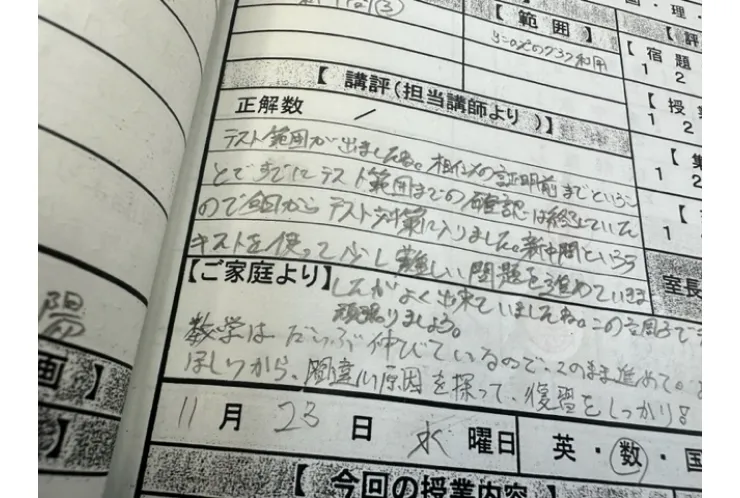 【範囲】
y=ax²のグラフ利用
【宿題
1 2
【授業
1 2
【集
1 2
【講評(担当講師より)】
正解数 /
テスト範囲が出ましたね。相似の証明前までというこ
とですでにテスト範囲までの確認は終えていた
ので今回からテスト対策に入りました。新中問というテ
キストを使って少し難しい問題を進めていきま
したがよく出来ていましたね。この調子で
頑張りましょう。
【ご家庭より】
数学はだいぶ伸びているので、このまま進めて。
ほしいから、間違い原因を探って、復習をしっかり!
室長
陽
画】
】
11月23日水曜日
英・数・国
【今回の授業内容】